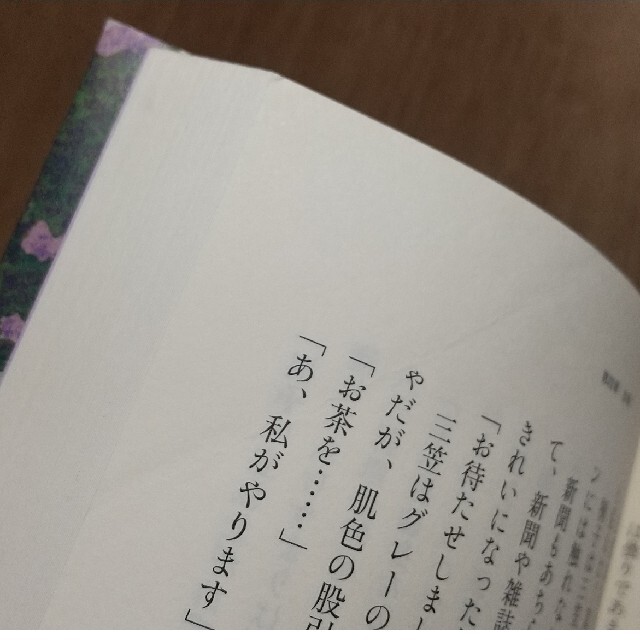 ンには触れな
新聞もあち
て、新聞や雑誌
きれいになった
「お待たせしまし
三笠はグレーの
やだが、肌色の股引
「お茶を……」
「あ、私がやります」